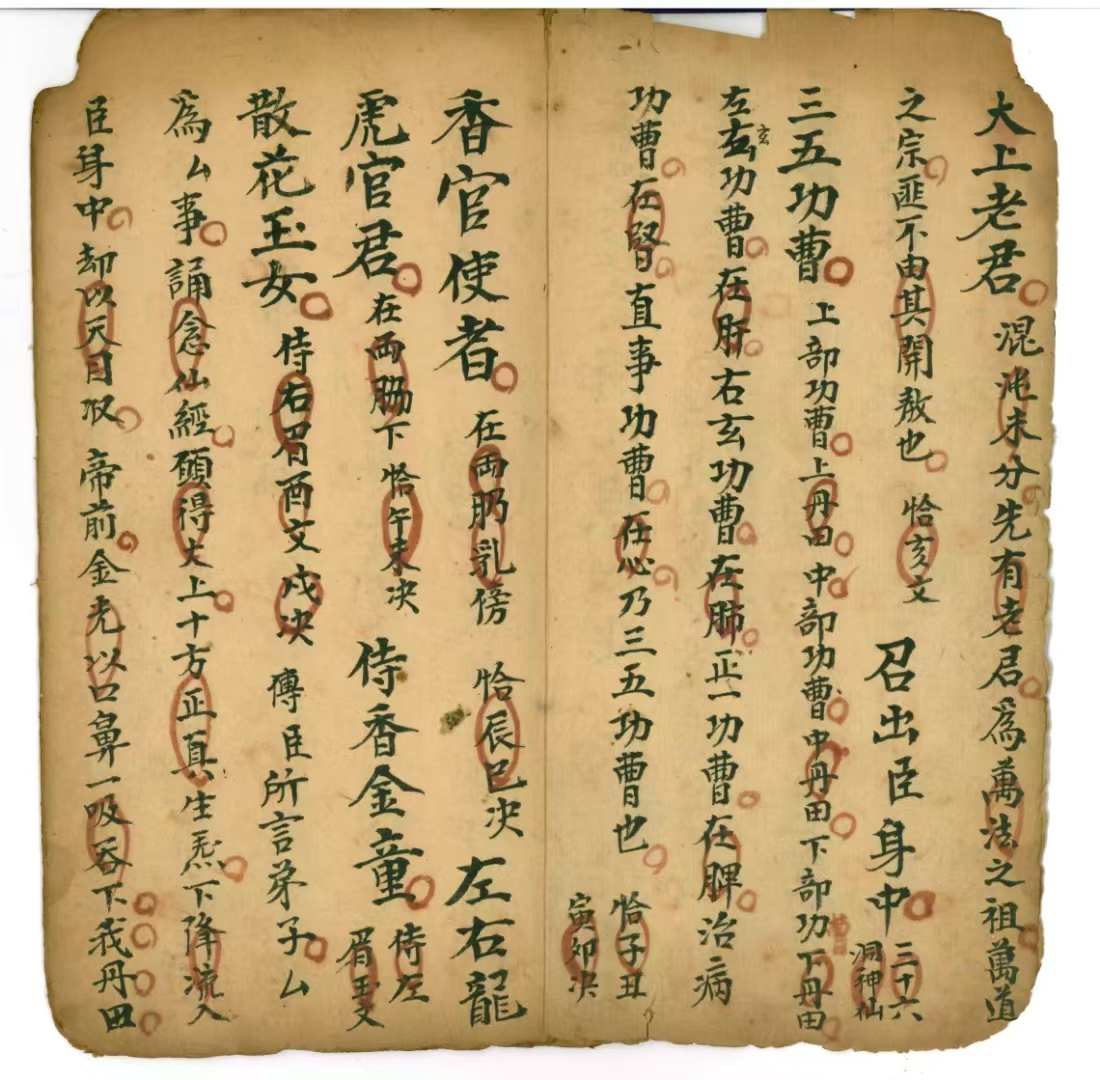 大上老君混沌未分先有老君為萬法之祖萬道
之宗匪不由其開教也 恰亥文 召出臣身中三十六洞神仙
三五功曹上部功曹上丹田中部功曹中丹田下部功曹下丹田
左玄功曹在肝右玄功曹在肺正一功曹在脾治病
功曹在腎直事功曹在心乃三五功曹也 恰子丑寅卯决
香官使者在両肐乳傍 恰辰巳决 左右龍
虎官君在両脇下恰午未决 侍香金童侍左眉玉文
散花玉女侍右眉酉文戍决 傳臣所言弟子厶
為厶事誦念仙經願得大上十方正真生炁下降流入
臣身中却以天目収帝前金光以口鼻一吸吞下我丹田